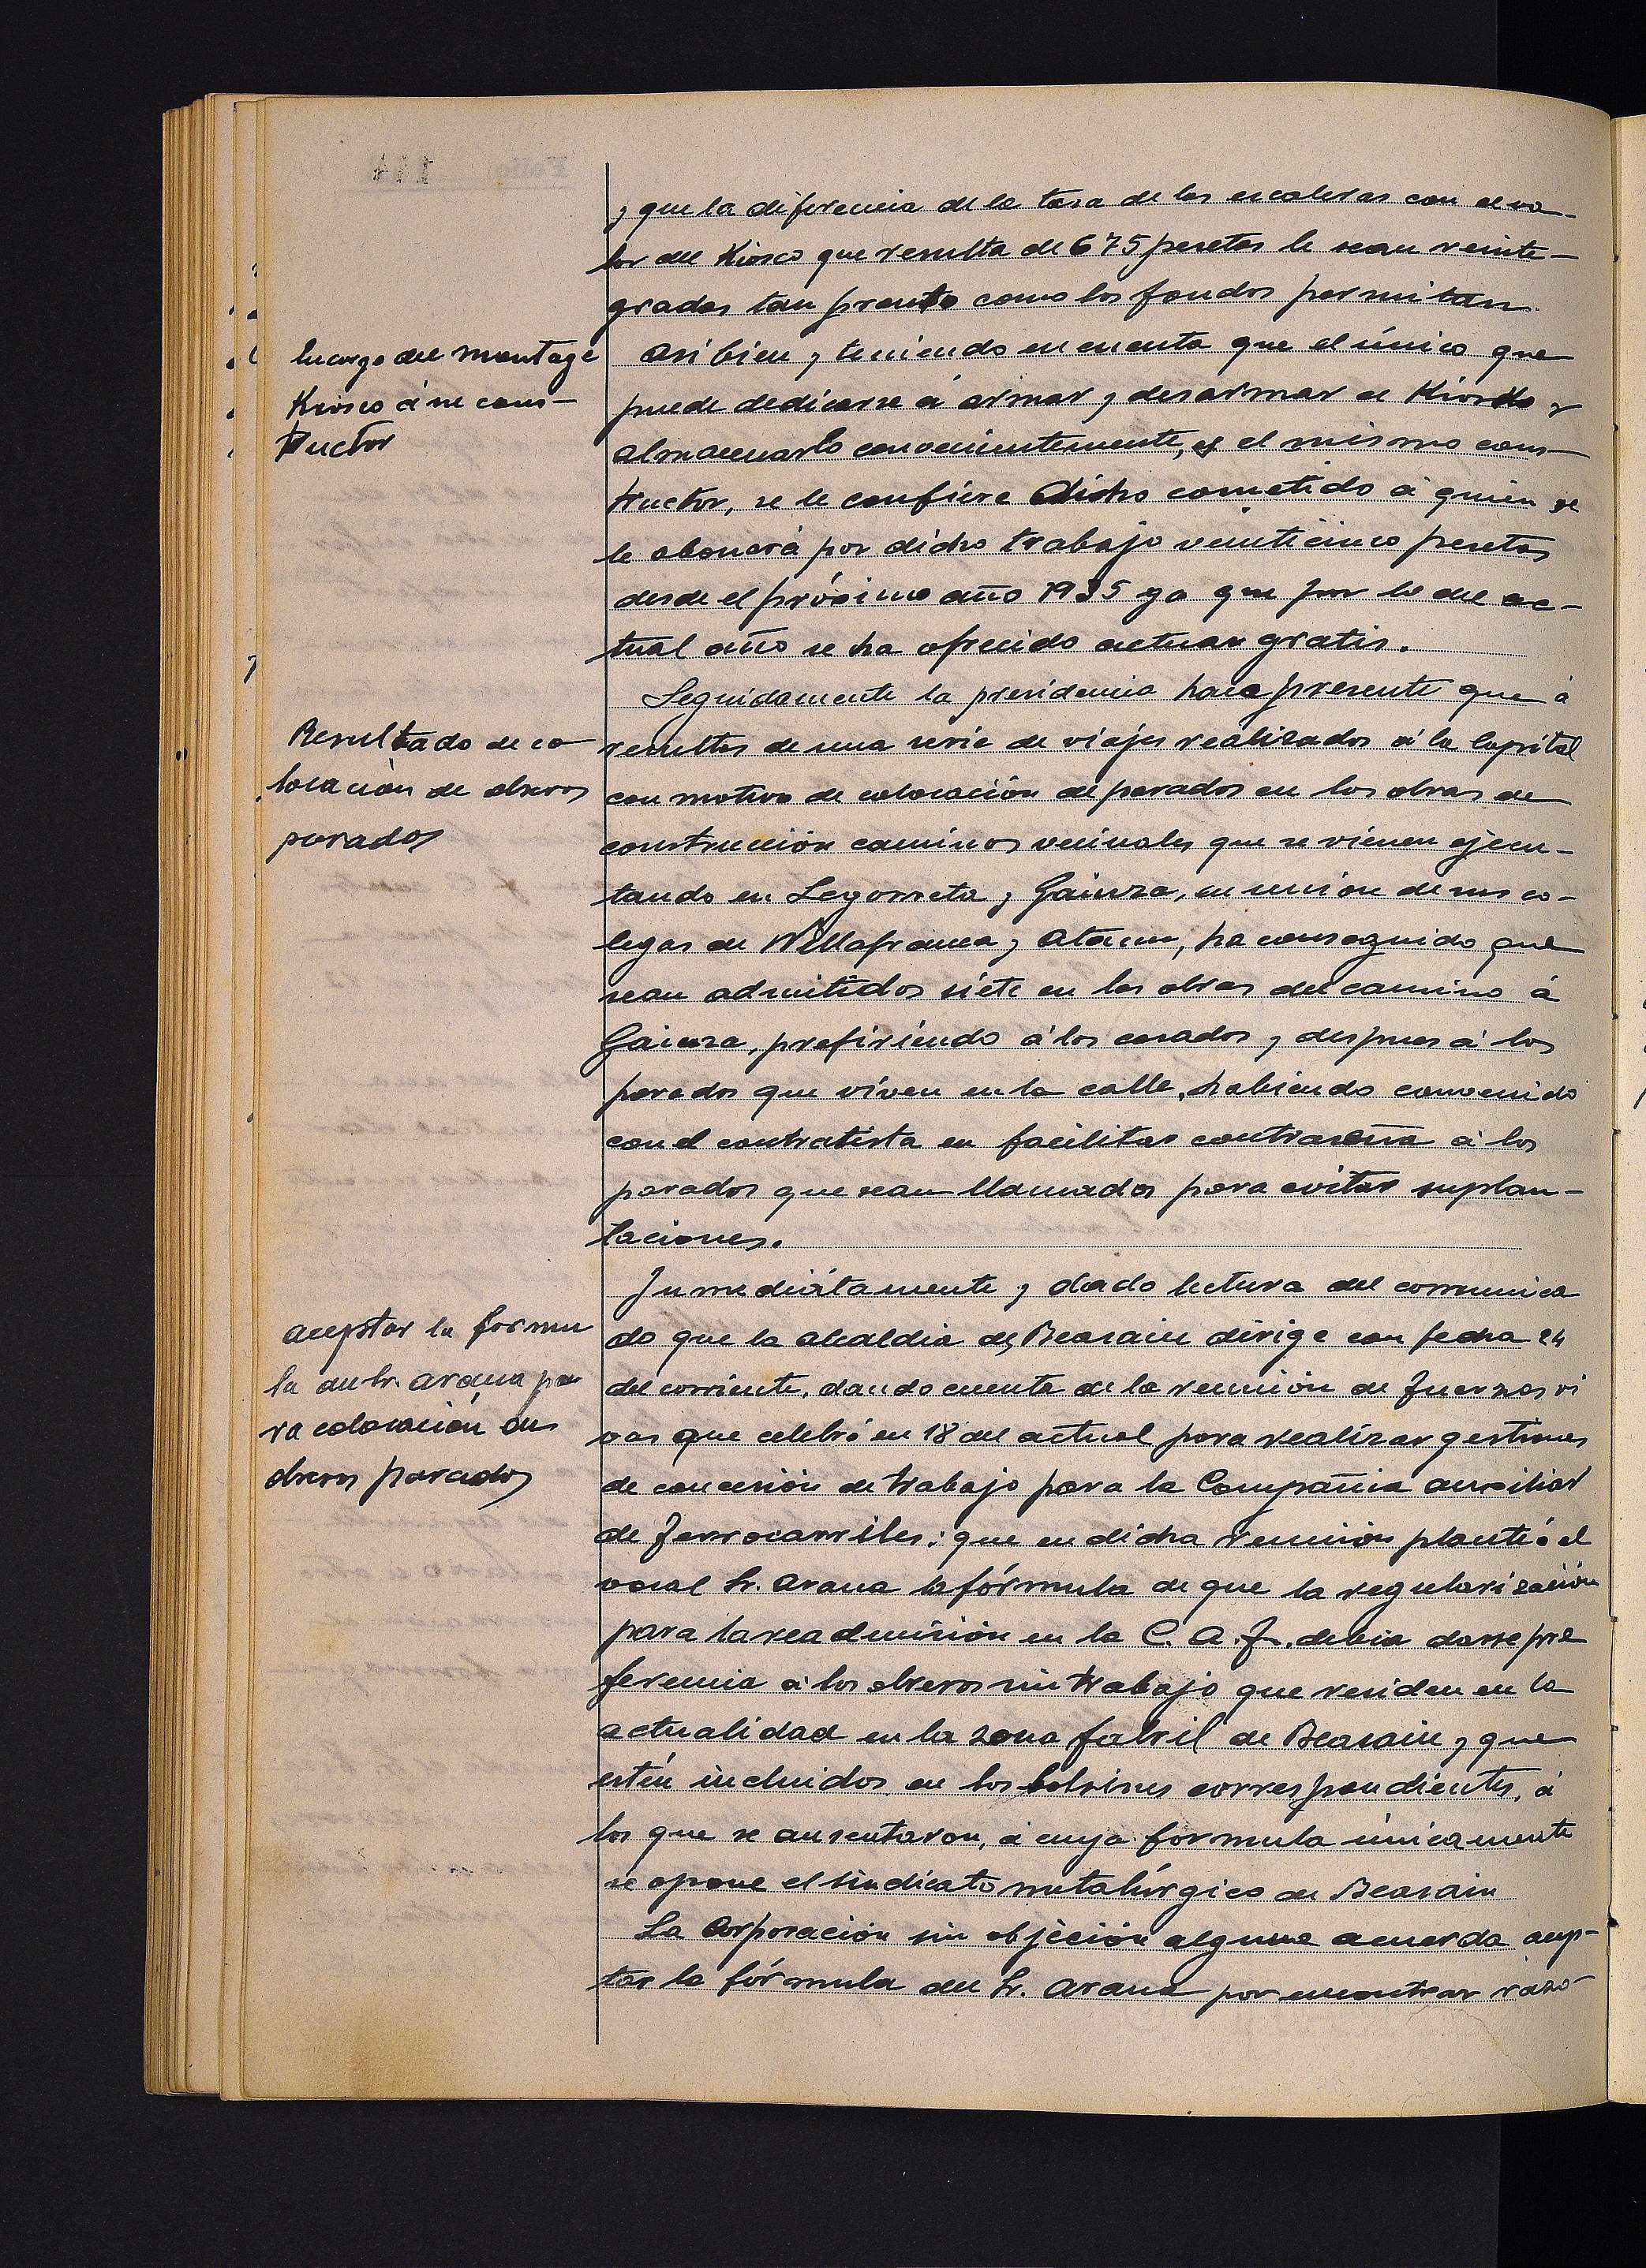 y que la diferencia de la tasa de las escaleras con el va-
lor del Kiosco que resulta de 675 pesetas le sean reinte-
gradas tan pronto como los fondos permitan.
Encargo del montage
Kiosco á su cons-
tructor
Asi bien y teniendo en cuenta que el único que
puede dedicarse á armar y desarmar el Kiosko y
almacenarlo convenientemente, es el mismo cons-
tructor, se le confiere dicho cometido á quien se
le abonará por dicho trabajo veinticinco pesetas
desde el próximo año 1935 ya que por lo del ac-
tual año se ha ofrecido actuar gratis.
Resultado de co-
locación de obreros
parados
Seguidamente la presidencia hace presente que á
resultas de una serie de viajes realizados á la Capital
con motivo de colocación de parados en las obras de
construcción caminos vecinales que se vienen ejecu-
tando en Legorreta y Gainza, en union de sus co-
legas de Villafranca y Ataun, ha conseguido que
sean admitidos siete en las obras del camino á
Gainza, prefiriendo á los casados y despues á los
parados que viven en la calle, habiendo convenido
con el contratista en facilitar contraseña á los
parados que sean llamados para evitar suplan-
taciones.
Aceptar la formu
la del Sr. Arana pa
ra colocación de
obreros parados
Inmediátamente y dado lectura del comunica
do que la alcaldia de Beasain dirige con fecha 24
del corriente, dando cuenta de la reunión de fuerzas vi
vas que celebró en 18 del actual para realizar gestiones
de concesión de trabajo para la Compañia auxiliar
de ferrocarriles: que en dicha reunión planteó el
vocal Sr. Arana la fórmula de que la regularización
para la readmisión en la C. A. F. debia darse pre
ferencia á los obreros sin trabajo que residen en la
actualidad en la zona fabril de Beasain y que
estén incluidos en los bolsines correspondientes, á
los que se ausentaron, á cuya formula únicamente
se opone el Sindicato metalúrgico de Beasain
La Corporación sin objeción alguna acuerda acep-
tar la fórmula del Sr. Arana por encontrar razo-